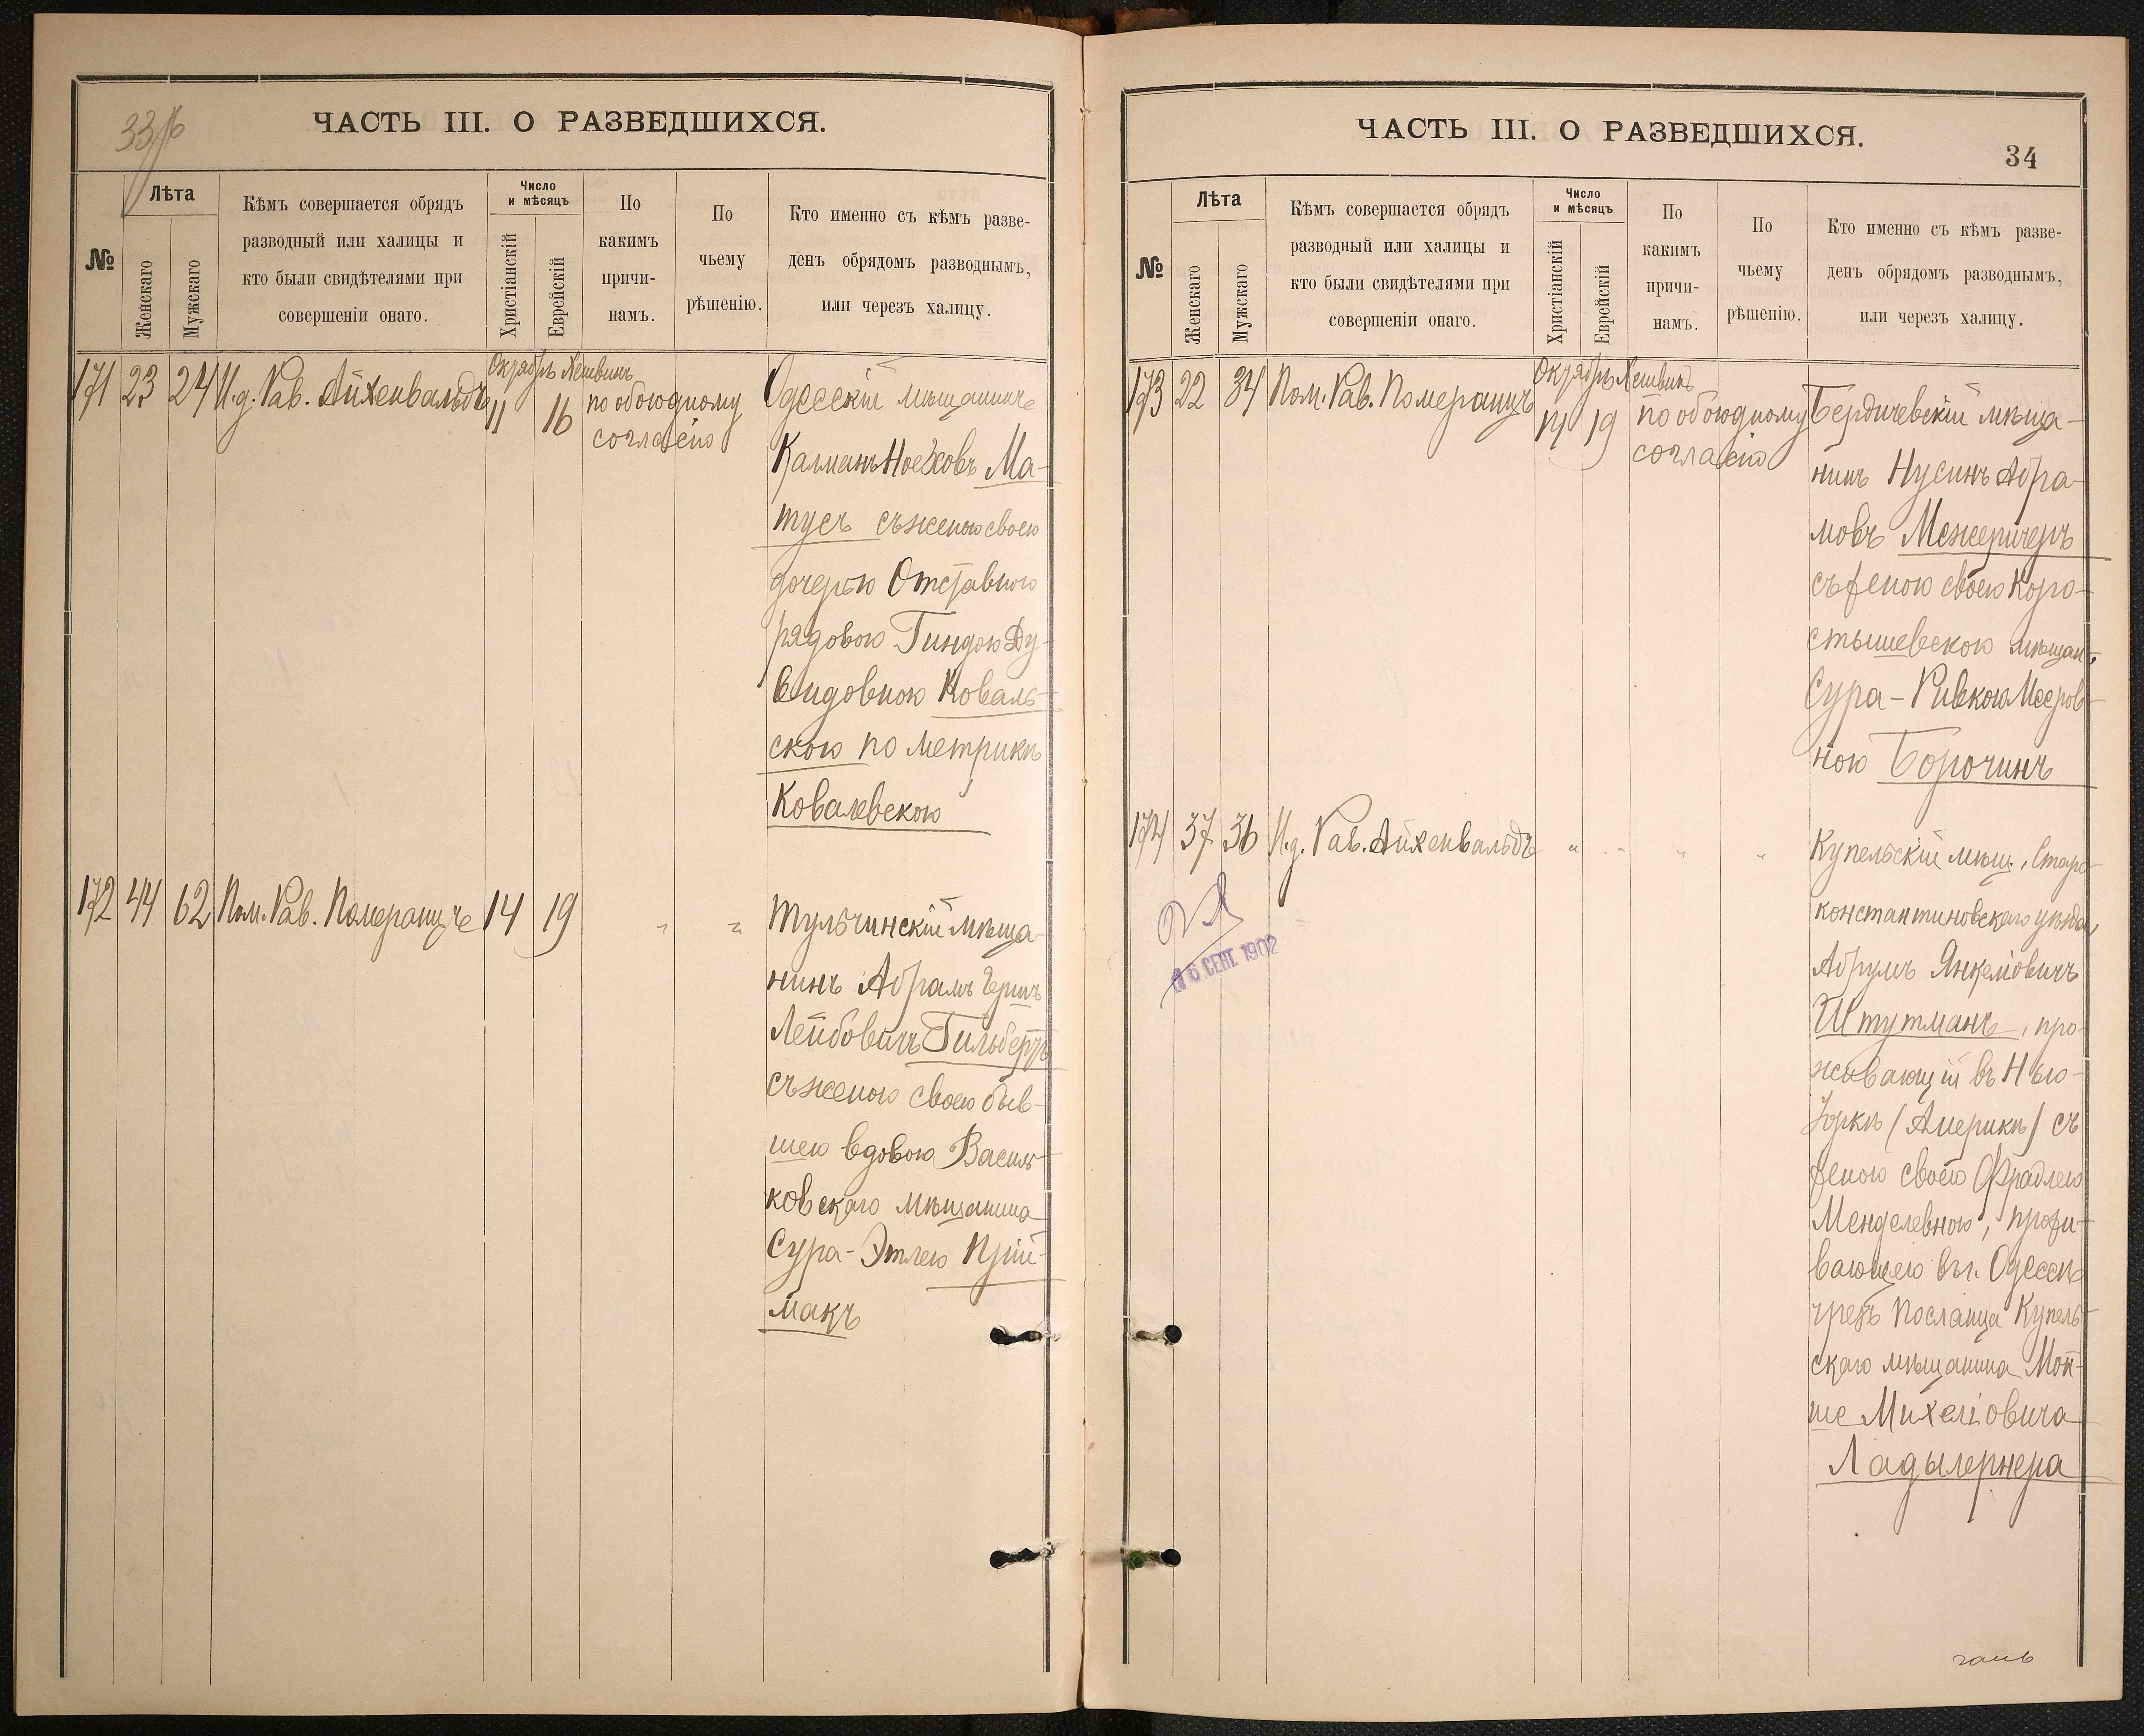 33/об
ЧАСТЬ III. О РАЗВЕДШИХСЯ.
№
Лѣта
Женскаго
Мужскаго
Кѣмъ совершается обрядъ
разводный или халицы и
кто были свидѣтелями при
совершеніи онаго.
Число
и мѣсяцъ
Христіанскій
Еврейскій
По
какимъ
причи-
намъ.
По
чьему
рѣшенію.
Кто именно съ кѣмъ разве-
денъ обрядомъ разводнымъ,
или черезъ халицу.
Октябрь Хешвинъ
171 23 24 И.д. Рав. Айхенвальдъ 11 16 по обоюдному
согласію
Одесскій мѣщанинъ
Калманъ Ноеховъ Ма-
тусъ съ женою своею
дочерью Отставного
рядового Гиндою Ду-
видовною Коваль-
скою по метрикѣ
Ковалевскою
172 44 62 Пом. Рав. Померанцъ 14 19 " "
Тульчинскій мѣща-
нинъ Абрамъ Гершъ
Лейбовичъ Гильбертъ
съ женою своею быв-
шею вдовою Василь-
ковскаго мѣщанина
Сура-Этлею Прій-
макъ
ЧАСТЬ III. О РАЗВЕДШИХСЯ.
34
№
Лѣта
Женскаго
Мужскаго
Кѣмъ совершается обрядъ
разводный или халицы и
кто были свидѣтелями при
совершеніи онаго.
Число
и мѣсяцъ
Христіанскій
Еврейскій
По
какимъ
причи-
намъ.
По
чьему
рѣшенію.
Кто именно съ кѣмъ разве-
денъ обрядомъ разводнымъ,
или черезъ халицу.
Октябрь Хешвинъ
173 22 34 Пом. Рав. Померанцъ 14 19 по обоюдному
согласію
Бердичевскій мѣща-
нинъ Нусинъ Абра-
мовъ Межеричеръ
съ женою своею Коро-
стышевскою мѣщан.
Сура-Ривкою Мееров-
ною Борочинъ
174 37 36 И.д. Рав. Айхенвальдъ " " " "
16 СЕНТ. 1902
Купельскій мѣщ., Старо-
константиновскаго уѣзда,
Абрумъ Янкеліовичъ
Штутманъ, про-
живающій въ Нью-
Іоркѣ (Америкѣ) съ
женою своею Фрадлею
Менделевною, прожи-
вающею въ г. Одессѣ
чрезъ посланца Купель-
скаго мѣщанина Мой-
ше Михеліовича
Ладылернера